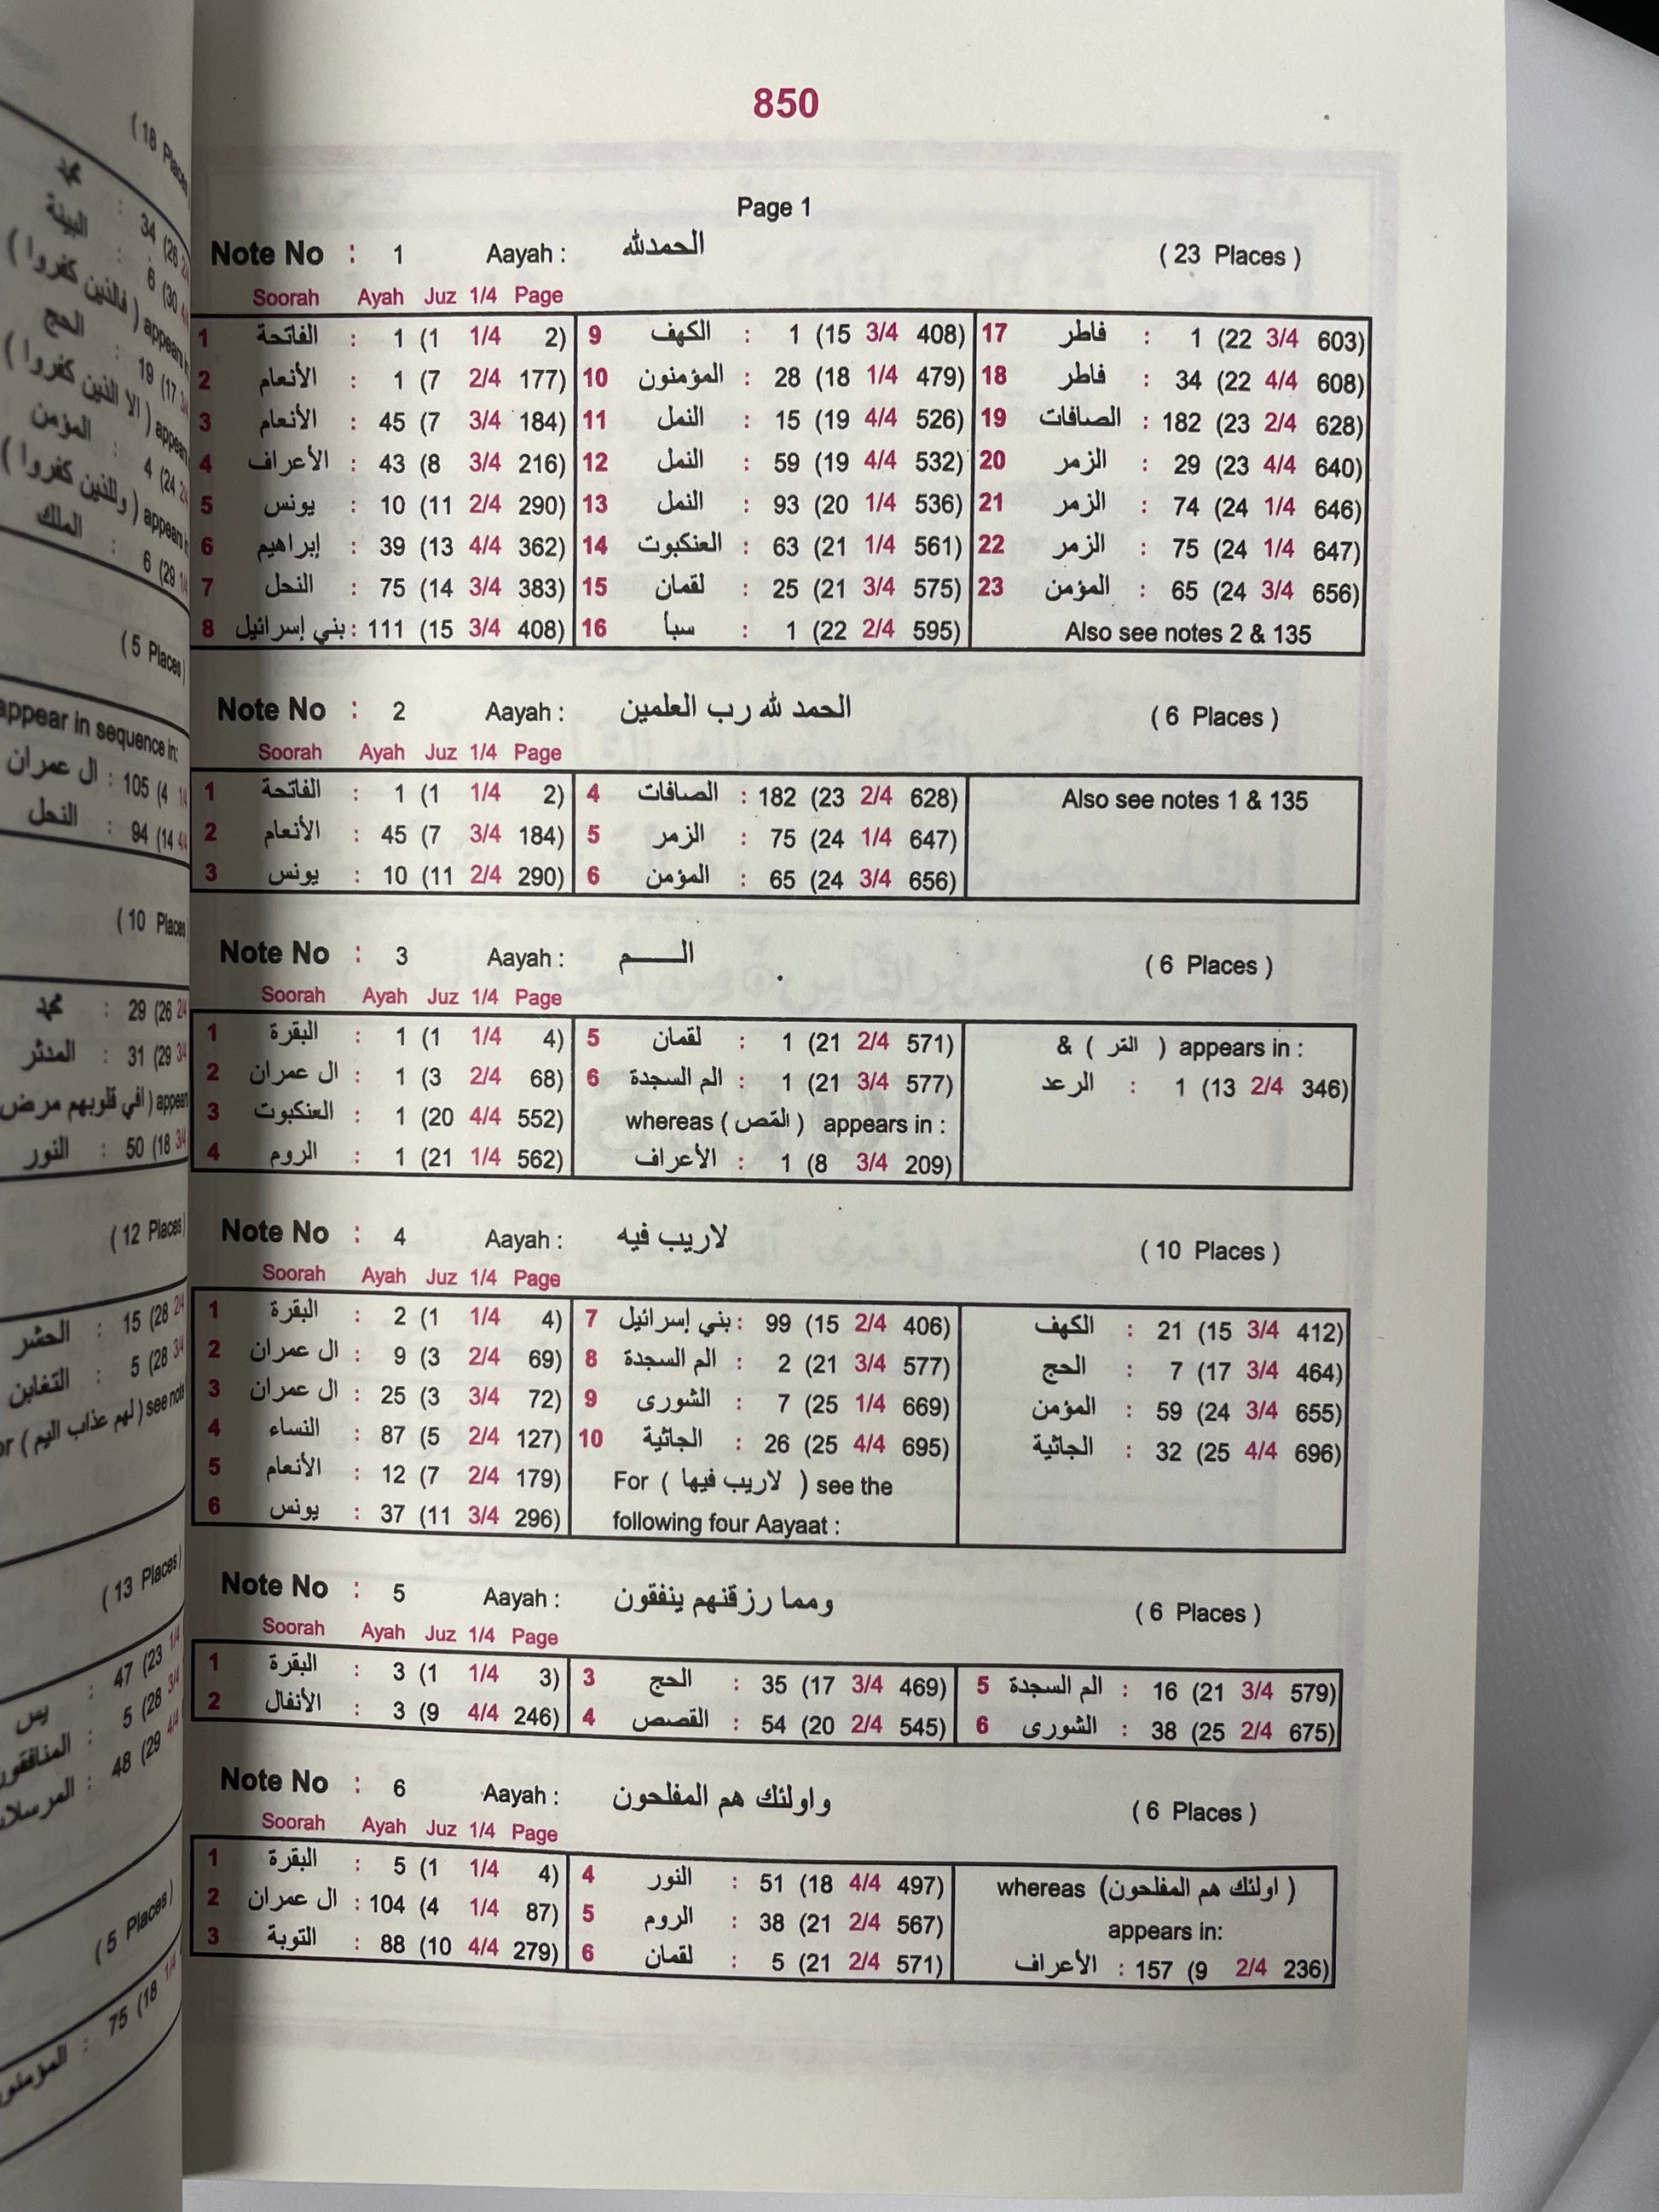 850
Page 1
Note No : 1 Aayah : الحمدلله ( 23 Places )
Soorah Ayah Juz 1/4 Page
1 الفاتحة : 1 (1 1/4 2) 9 الكهف : 1 (15 3/4 408) 17 فاطر : 1 (22 3/4 603)
2 الأنعام : 1 (7 2/4 177) 10 المؤمنون : 28 (18 1/4 479) 18 فاطر : 34 (22 4/4 608)
3 الأنعام : 45 (7 3/4 184) 11 النمل : 15 (19 4/4 526) 19 الصافات : 182 (23 2/4 628)
4 الأعراف : 43 (8 3/4 216) 12 النمل : 59 (19 4/4 532) 20 الزمر : 29 (23 4/4 640)
5 يونس : 10 (11 2/4 290) 13 النمل : 93 (20 1/4 536) 21 الزمر : 74 (24 1/4 646)
6 إبراهيم : 39 (13 4/4 362) 14 العنكبوت : 63 (21 1/4 561) 22 الزمر : 75 (24 1/4 647)
7 النحل : 75 (14 3/4 383) 15 لقمان : 25 (21 3/4 575) 23 المؤمن : 65 (24 3/4 656)
8 بني إسرائيل : 111 (15 3/4 408) 16 سبأ : 1 (22 2/4 595) Also see notes 2 & 135
Note No : 2 Aayah : الحمد لله رب العلمين ( 6 Places )
Soorah Ayah Juz 1/4 Page
1 الفاتحة : 1 (1 1/4 2) 4 الصافات : 182 (23 2/4 628) Also see notes 1 & 135
2 الأنعام : 45 (7 3/4 184) 5 الزمر : 75 (24 1/4 647)
3 يونس : 10 (11 2/4 290) 6 المؤمن : 65 (24 3/4 656)
Note No : 3 Aayah : الـــم ( 6 Places )
Soorah Ayah Juz 1/4 Page
1 البقرة : 1 (1 1/4 4) 5 لقمان : 1 (21 2/4 571) & ( القر ) appears in :
2 ال عمران : 1 (3 2/4 68) 6 الم السجدة : 1 (21 3/4 577) الرعد : 1 (13 2/4 346)
3 العنكبوت : 1 (20 4/4 552) whereas ( القص ) appears in :
4 الروم : 1 (21 1/4 562) الأعراف : 1 (8 3/4 209)
Note No : 4 Aayah : لاريب فيه ( 10 Places )
Soorah Ayah Juz 1/4 Page
1 البقرة : 2 (1 1/4 4) 7 بني إسرائيل : 99 (15 2/4 406) الكهف : 21 (15 3/4 412)
2 ال عمران : 9 (3 2/4 69) 8 الم السجدة : 2 (21 3/4 577) الحج : 7 (17 3/4 464)
3 ال عمران : 25 (3 3/4 72) 9 الشورى : 7 (25 1/4 669) المؤمن : 59 (24 3/4 655)
4 النساء : 87 (5 2/4 127) 10 الجاثية : 26 (25 4/4 695) الجاثية : 32 (25 4/4 696)
5 الأنعام : 12 (7 2/4 179) For ( لاريب فيها ) see the
6 يونس : 37 (11 3/4 296) following four Aayaat :
Note No : 5 Aayah : ومما رزقنهم ينفقون ( 6 Places )
Soorah Ayah Juz 1/4 Page
1 البقرة : 3 (1 1/4 3) 3 الحج : 35 (17 3/4 469) 5 الم السجدة : 16 (21 3/4 579)
2 الأنفال : 3 (9 4/4 246) 4 القصص : 54 (20 2/4 545) 6 الشورى : 38 (25 2/4 675)
Note No : 6 Aayah : واولئك هم المفلحون ( 6 Places )
Soorah Ayah Juz 1/4 Page
1 البقرة : 5 (1 1/4 4) 4 النور : 51 (18 4/4 497) whereas (اولئك هم المفلحون )
2 ال عمران : 104 (4 1/4 87) 5 الروم : 38 (21 2/4 567) appears in:
3 التوبة : 88 (10 4/4 279) 6 لقمان : 5 (21 2/4 571) الأعراف : 157 (9 2/4 236)